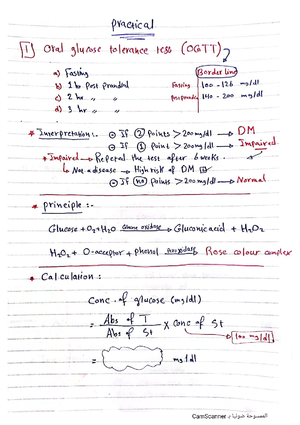 practical
1 Oral glucose tolerance test (OGTT)
Border line
a) Fasting
Fasting 100 - 126 mg/dl
b) 1 hr Post prandial
postprandial 140 - 200 mg/dl
c) 2 hr " "
d) 3 hr " "
* Interpretation :- ⊙ If 2 Points > 200 mg/dl → DM
⊙ If 1 Point > 200 mg/dl → Impaired
* Impaired → Repeat the test after 6 weeks.
↳ Not a disease → High risk of DM
⊙ If no points > 200 mg/dl → Normal
* principle :-
Glucose + O2 + H2O glucose oxidase → Gluconic acid + H2O2
H2O2 + O-acceptor + phenol peroxidase → Rose colour complex
* Calculation :
Conc. of glucose (mg/dl)
= Abs of T / Abs of St x conc of St
→ 100 mg/dl
= mg/dl
CamScanner الممسوحة ضوئيا بـ